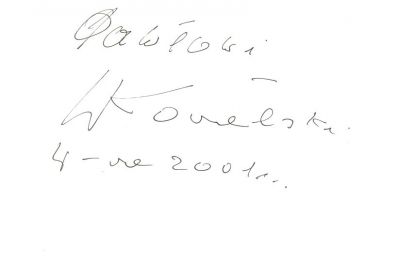 Pawłowi
WKowalski
W-wa 2001r.